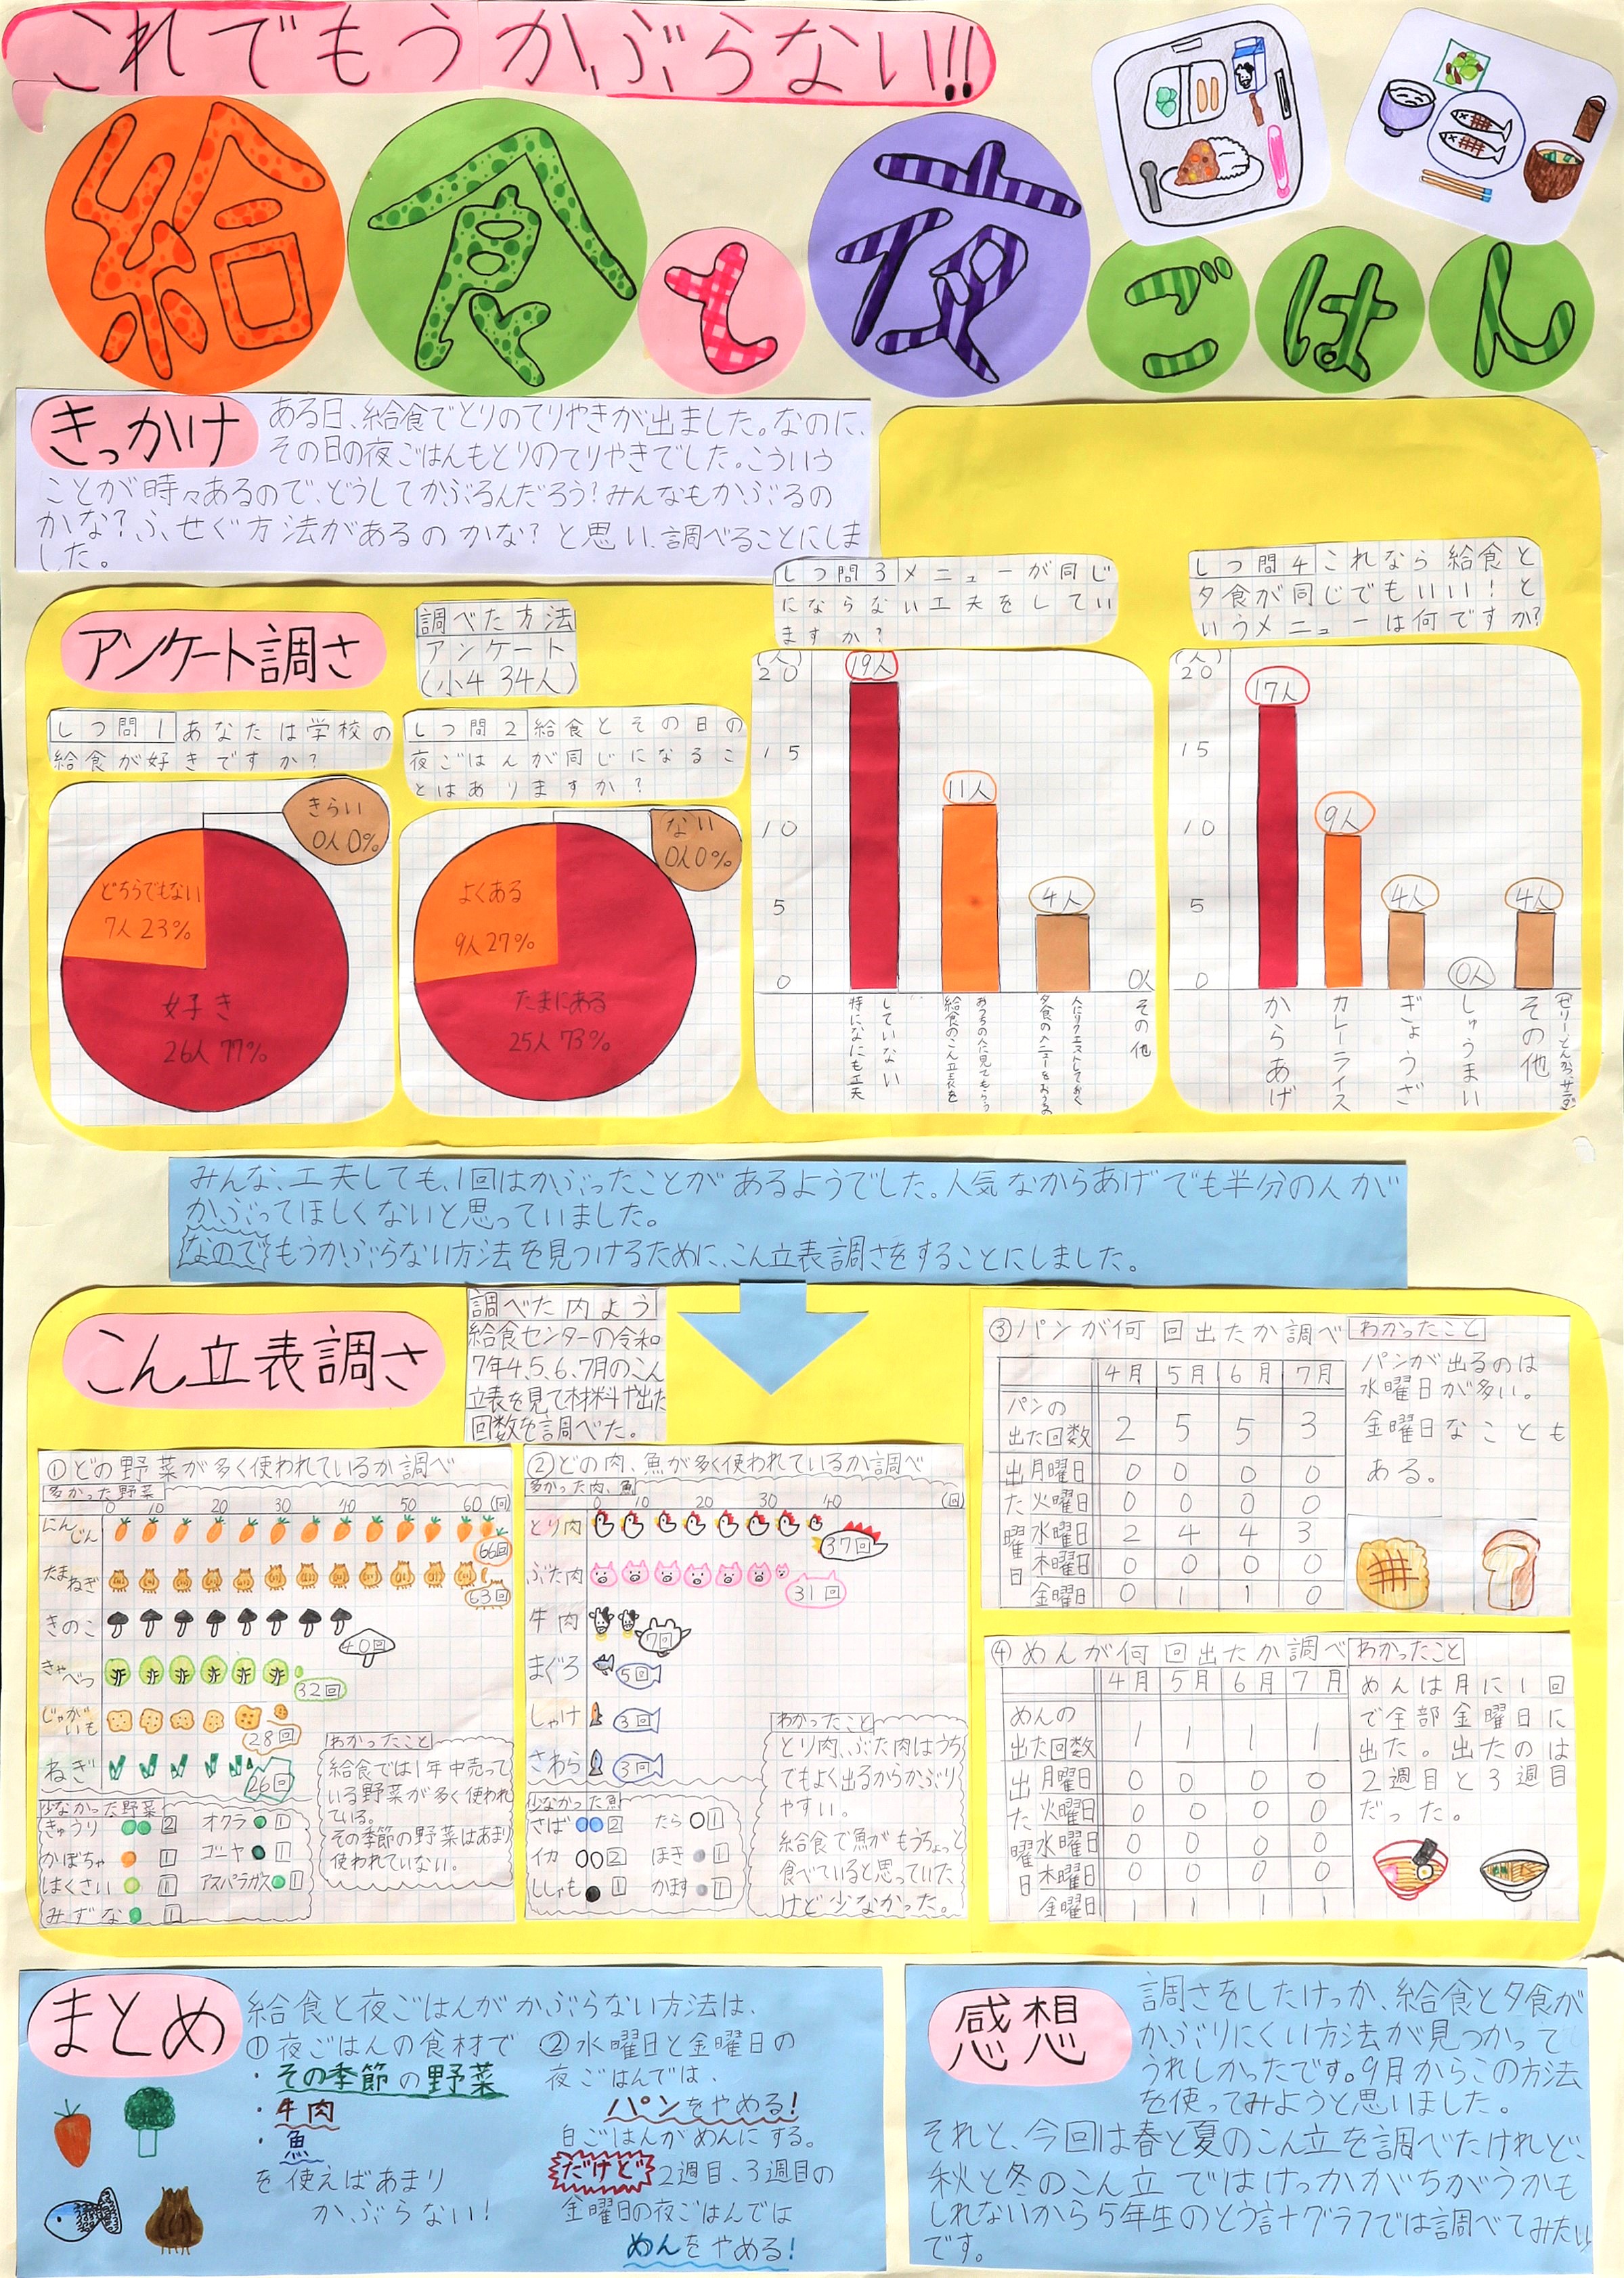 これでもうかぶらない!!
給食と夜ごはん
きっかけ
ある日、給食でとりのてりやきが出ました。なのに、
その日の夜ごはんもとりのてりやきでした。こういう
ことが時々あるので、どうしてかぶるんだろう?みんなもかぶるの
かな?ふせぐ方法があるのかな?と思い、調べることにしま
した。
アンケート調さ
調べた方法
アンケート
(小4 34人)
しつ問1 あなたは学校の
給食が好きですか?
きらい
0人0%
どちらでもない
7人 23%
好き
26人 77%
しつ問2 給食とその日の
夜ごはんが同じになるこ
とはありますか?
ない
0人0%
よくある
9人27%
たまにある
25人 73%
しつ問3 メニューが同じ
にならない工夫をしてい
ますか?
(人)
20
15
10
5
0
19人
11人
4人
0人
特になにも工夫
していない
給食のこん立表を
おうちの人に見てもらう
夕食のメニューをおうちの
人にリクエストしておく
その他
しつ問4 これなら給食と
夕食が同じでもいい!と
いうメニューは何ですか?
(人)
20
15
10
5
0
17人
9人
4人
0人
4人
からあげ
カレーライス
ぎょうざ
しゅうまい
その他
みんな、工夫しても、1回はかぶったことがあるようでした。人気なからあげでも半分の人が
かぶってほしくないと思っていました。
なのでもうかぶらない方法を見つけるために、こん立表調さをすることにしました。
こん立表調さ
調べた内よう
給食センターの令和
7年4、5、6、7月のこん
立表を見て材料や出た
回数を調べた。
①どの野菜が多く使われているか調べ
多かった野菜
0 10 20 30 40 50 60 (回)
にんじん 66回
たまねぎ 63回
きのこ 40回
きゃべつ 32回
じゃがいも 28回
ねぎ 26回
少なかった野菜
きゅうり 2
かぼちゃ 1
はくさい 1
みずな 1
オクラ 1
ゴーヤ 1
アスパラガス 1
わかったこと
給食では1年中売って
いる野菜が多く使われ
ている。
その季節の野菜はあまり
使われていない。
②どの肉、魚が多く使われているか調べ
多かった肉、魚
0 10 20 30 40 (回)
とり肉 37回
ぶた肉 31回
牛肉 7回
まぐろ 5回
しゃけ 3回
さわら 3回
少なかった魚
さば 2
イカ 2
ししゃも 1
たら 1
ほき 1
かます 1
わかったこと
とり肉、ぶた肉はうち
でもよく出るからかぶり
やすい。
給食で魚がもうちょっと
食べていると思っていた
けど少なかった。
③パンが何回出たか調べ
4月 5月 6月 7月
パンの出た回数 2 5 5 3
出た曜日
月曜日 0 0 0 0
火曜日 0 0 0 0
水曜日 2 4 4 3
木曜日 0 0 0 0
金曜日 0 1 1 0
わかったこと
パンが出るのは
水曜日が多い。
金曜日なことも
ある。
④めんが何回出たか調べ
4月 5月 6月 7月
めんの出た回数 1 1 1 1
出た曜日
月曜日 0 0 0 0
火曜日 0 0 0 0
水曜日 0 0 0 0
木曜日 0 0 0 0
金曜日 1 1 1 1
わかったこと
めんは月に1回
で全部金曜日に
出た。出たのは
2週目と3週目
だった。
まとめ
給食と夜ごはんがかぶらない方法は、
①夜ごはんの食材で
・その季節の野菜
・牛肉
・魚
を使えばあまり
かぶらない!
②水曜日と金曜日の
夜ごはんでは、
パンをやめる!
白ごはんかめんにする。
だけど2週目、3週目の
金曜日の夜ごはんでは
めんをやめる!
感想
調さをしたけっか、給食と夕食が
かぶりにくい方法が見つかって
うれしかったです。9月からこの方法
を使ってみようと思いました。
それと、今回は春と夏のこん立を調べたけれど、
秋と冬のこん立ではけっかがちがうかも
しれないから5年生のとう計グラフでは調べてみたい
です。